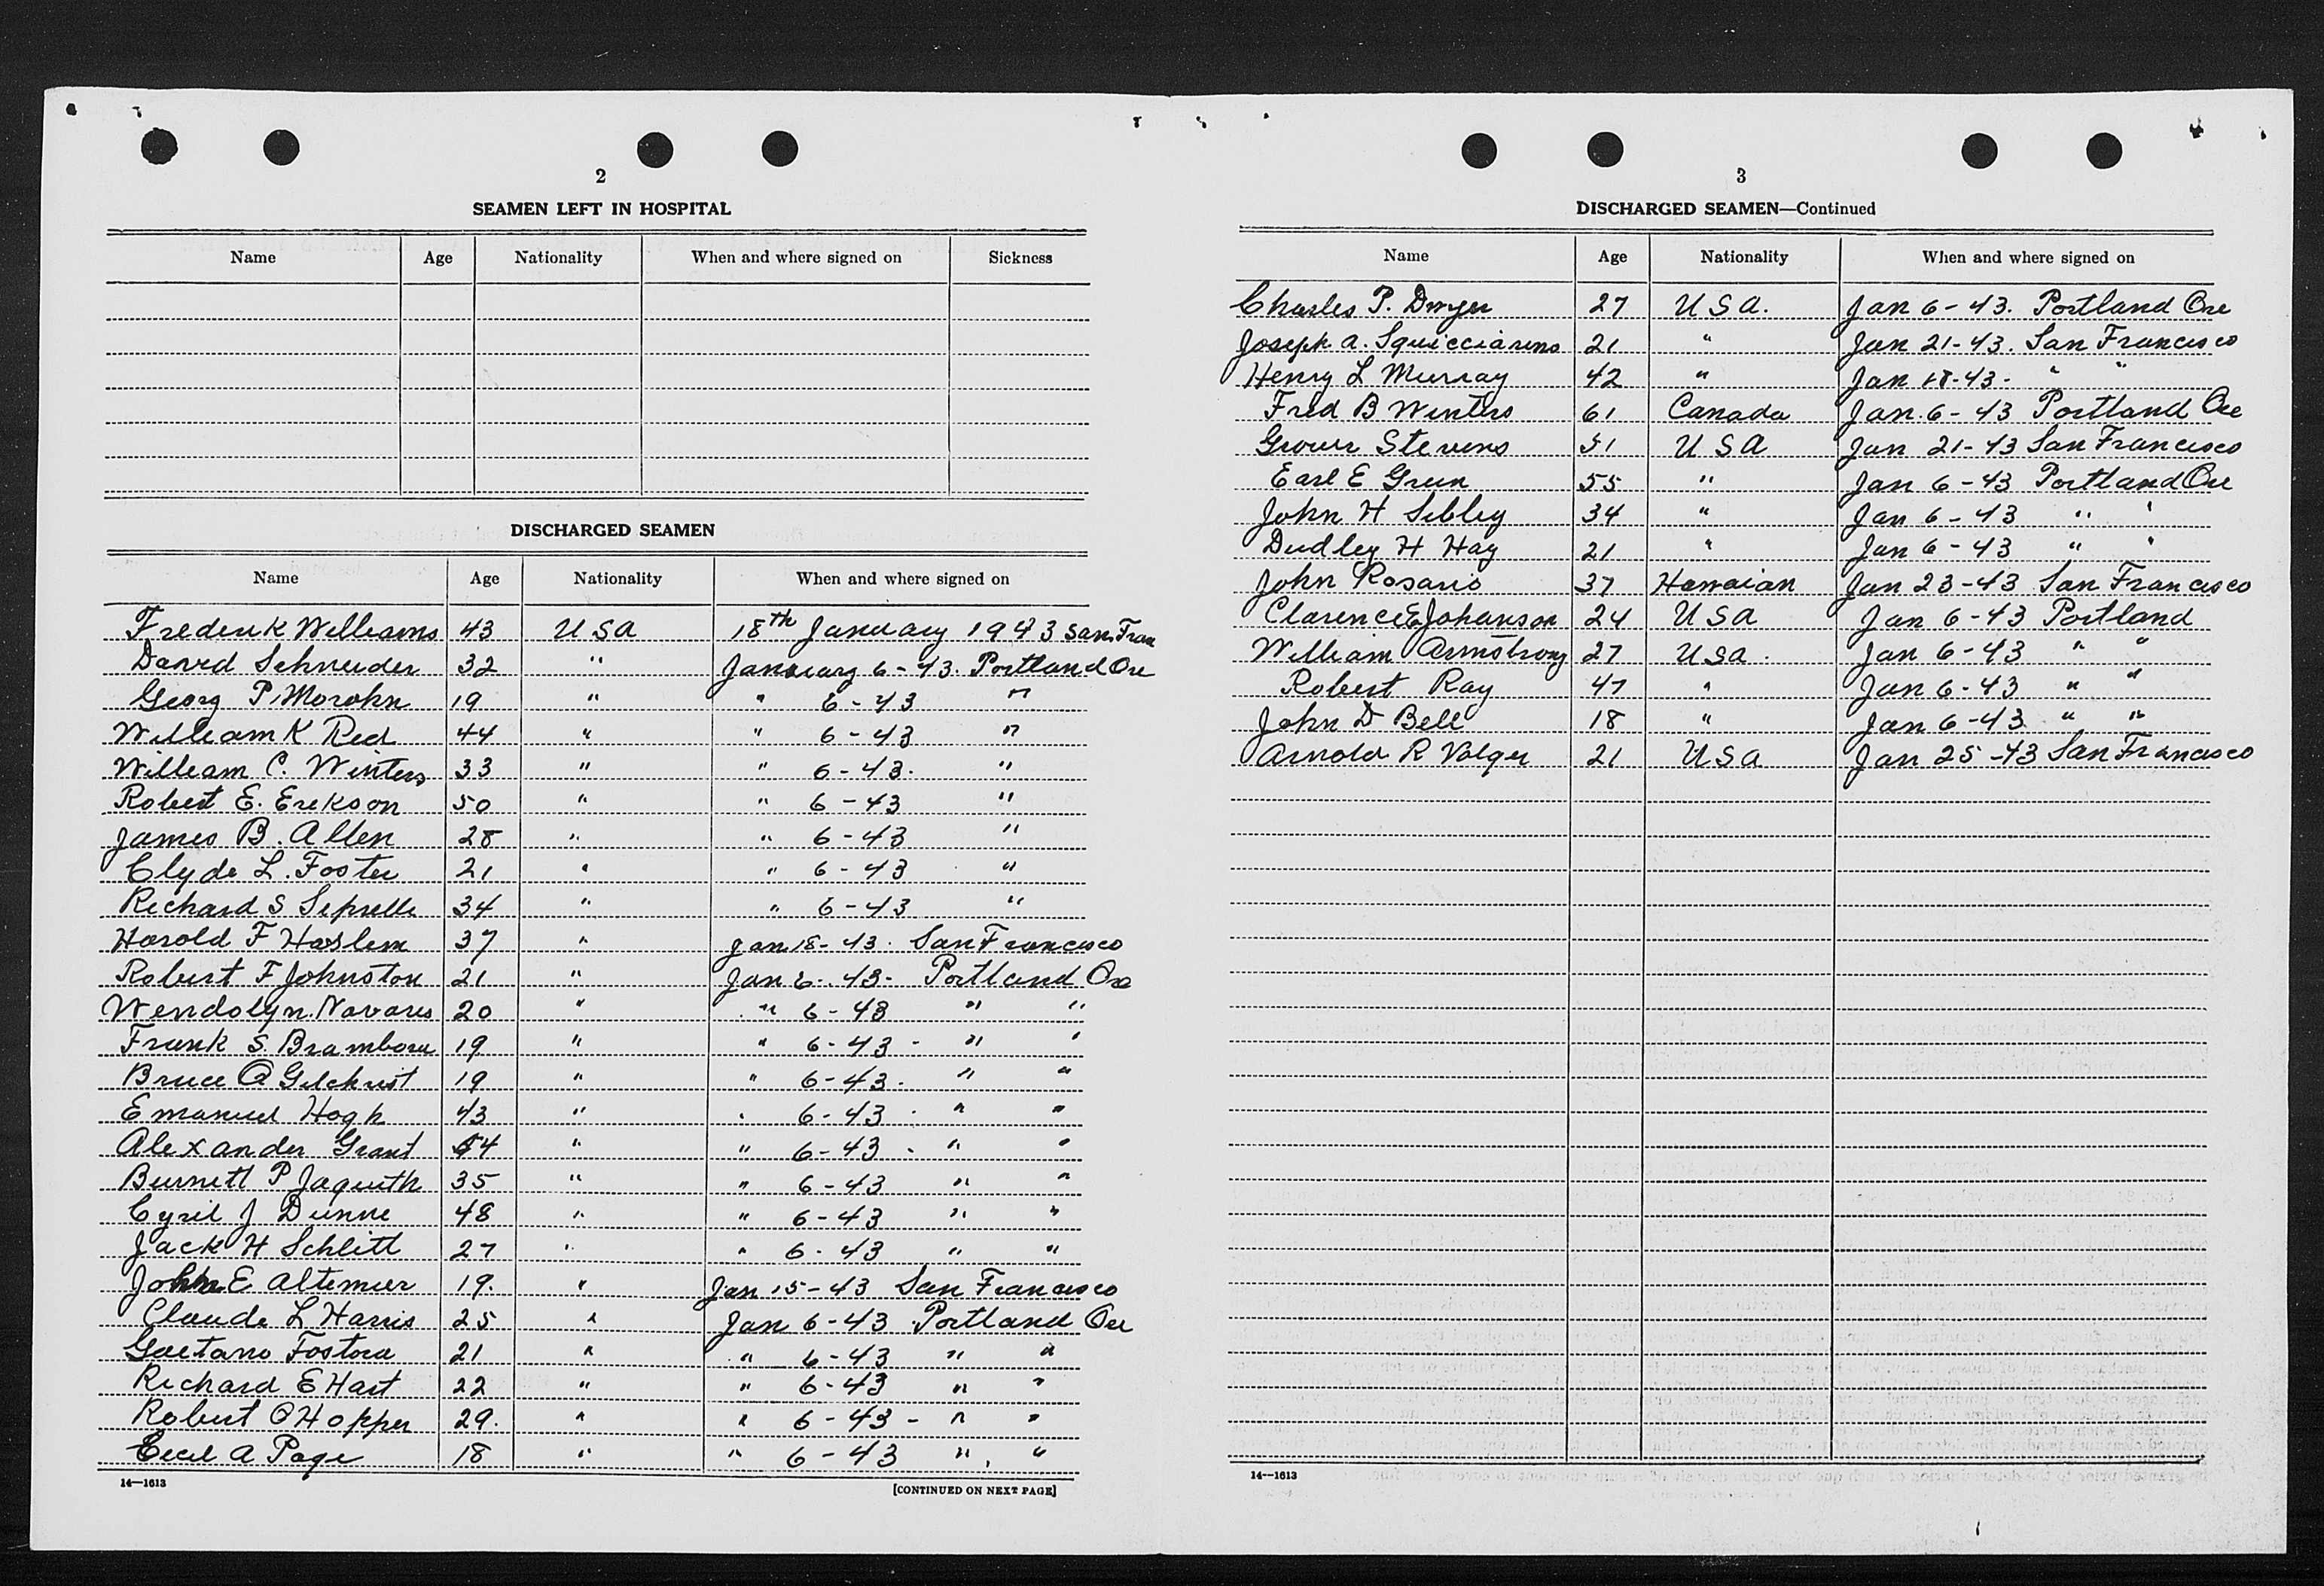 2
SEAMEN LEFT IN HOSPITAL
Name Age Nationality When and where signed on Sickness
DISCHARGED SEAMEN
Name Age Nationality When and where signed on
Frederick Williams 43 USA 18th January 1943 San Fran
David Schneider 32 " January 6-43. Portland Ore
Georg P. Morohn 19 " " 6-43 "
William K Reid 44 " " 6-43 "
William C. Winters 33 " " 6-43. "
Robert E. Erikson 50 " " 6-43 "
James B. Allen 28 " " 6-43 "
Clyde L. Foster 21 " " 6-43 "
Richard S 34 " " 6-43 "
Harold F Haslem 37 " Jan 18-43. San Francisco
Robert F Johnston 21 " Jan 6-43- Portland Ore
Wendolyn Navares 20 " " 6-43 " "
Frank S. Brambora 19 " " 6-43 - " "
Bruce Gilchrist 19 " " 6-43. " "
Emanuel Hogh 43 " " 6-43 " "
Alexander Grant 54 " " 6-43 - " "
Burnett P Jaquith 35 " " 6-43 " "
Cyril J Dunne 48 " " 6-43 " "
Jack H Schlitt 27 " " 6-43 " "
John E Altemier 19. " Jan 15-43 San Francisco
Claude L Harris 25 " Jan 6-43 Portland Ore
Gaetano Fostora 21 " " 6-43 " "
Richard E Hart 22 " " 6-43 " "
Robert O Hopper 29. " " 6-43 - " "
Cecil A Page 18 " " 6-43 " "
14—1613
[CONTINUED ON NEXT PAGE]
3
DISCHARGED SEAMEN—Continued
Name Age Nationality When and where signed on
Charles P. Dwyer 27 USA. Jan 6-43. Portland Ore
Joseph A. Squicciarino 21 " Jan 21-43. San Francisco
Henry L Murray 42 " Jan 18-43- " "
Fred B Winters 61 Canada Jan. 6-43 Portland Ore
Grover Stevens 51 USA Jan 21-43 San Francisco
Earl E Green 55 " Jan 6-43 Portland Ore
John H Sibley 34 " Jan 6-43 " "
Dudley H Hay 21 " Jan 6-43 " "
John Rosario 37 Hawaian Jan 23-43 San Francisco
Clarence E Johanson 24 USA Jan 6-43 Portland
William Armstrong 27 USA. Jan 6-43 " "
Robert Ray 47 " Jan 6-43 " "
John D Bell 18 " Jan 6-43 " "
Arnold R Volger 21 USA Jan 25-43 San Francisco
14—1613